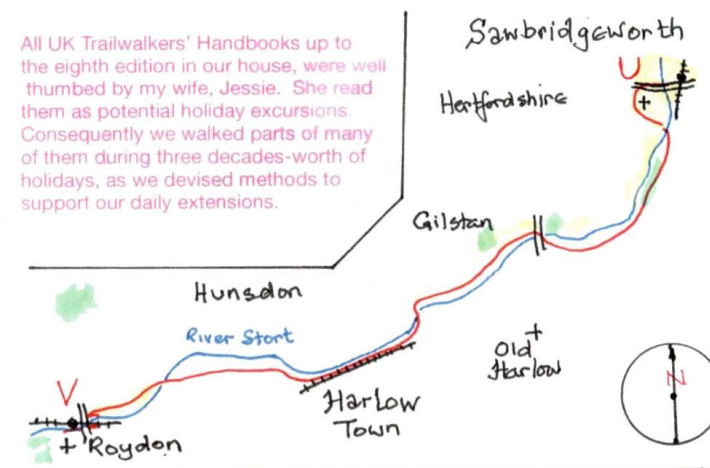 All UK Trailwalkers' Handbooks up to
the eighth edition in our house, were well
thumbed by my wife, Jessie. She read
them as potential holiday excursions.
Consequently we walked parts of many
of them during three decades-worth of
holidays, as we devised methods to
support our daily extensions.
Sawbridgeworth
U
Hertfordshire
Gilstan
Hunsdon
River Stort
Old
Harlow
N
Harlow
Town
V
Roydon